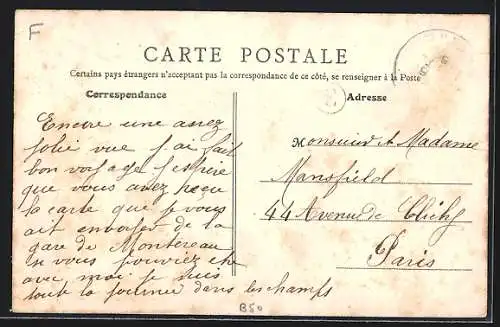 F
CARTE POSTALE
Certains pays étrangers n'acceptant pas la correspondance de ce côté, se renseigner à la Poste
Correspondance
Encore une assez
jolie vue j'ai fait
bon voyage j'espère
que vous avez reçu
la carte que je vous
ait envoyer de la
gare de Montereau
si vous pouviez être
avec moi je suis
tout la journée dans les champs
Adresse
Monsieur et Madame
Mansfield
44 Avenue de Clichy
Paris
B50